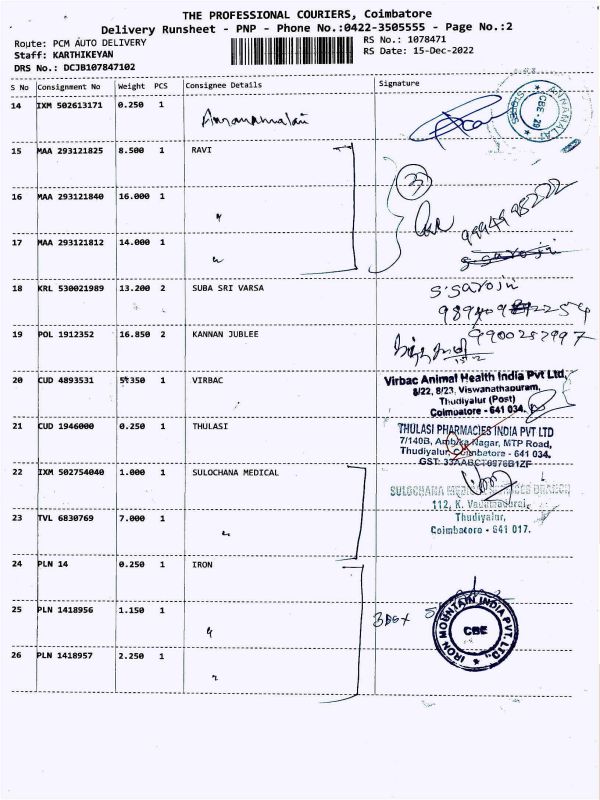 THE PROFESSIONAL COURIERS, Coimbatore
Delivery Runsheet - PNP - Phone No.:0422-3505555 - Page No.:2
Route: PCM AUTO DELIVERY
RS No.: 1078471
Staff: KARTHIKEYAN
RS Date: 15-Dec-2022
DRS No.: DCJB107847102
S No Consignment No Weight PCS Consignee Details Signature
14 IXM 502613171 0.250 1
ANNAMALAI STORES CBE - 29
15 MAA 293121825 8.500 1 RAVI
3
16 MAA 293121840 16.000 1 "
17 MAA 293121812 14.000 1 "
S. Saroji
18 KRL 530021989 13.200 2 SUBA SRI VARSA
S. Saroji
19 POL 1912352 16.850 2 KANNAN JUBLEE
20 CUD 4893531 5.350 1 VIRBAC
Virbac Animal Health India Pvt Ltd.,
8/22, 8/23, Viswanathapuram,
Thudiyalur (Post)
Coimbatore - 641 034.
21 CUD 1946000 0.250 1 THULASI
THULASI PHARMACIES INDIA PVT LTD
7/140B, Ambika Nagar, MTP Road,
Thudiyalur, Coimbatore - 641 034.
GST: 33AABCT0976B1ZF
22 IXM 502754040 1.000 1 SULOCHANA MEDICAL
SULOCHANA
112, K. Vadamadurai,
23 TVL 6830769 7.000 1 "
Thudiyalur,
Coimbatore - 641 017.
24 PLN 14 0.250 1 IRON
25 PLN 1418956 1.150 1 "
IRON MOUNTAIN INDIA PVT. LTD., CBE
26 PLN 1418957 2.250 1 "